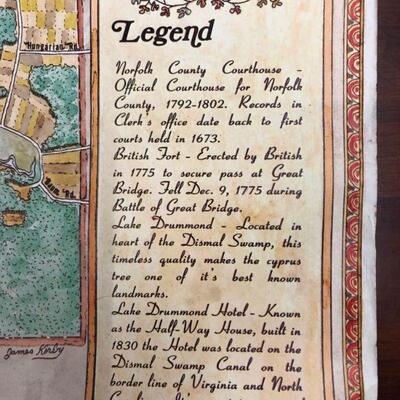 Legend
Hungarian Rd.
Norfolk County Courthouse -
Official Courthouse for Norfolk
County, 1792-1802. Records in
Clerk's office date back to first
courts held in 1673.
British Fort - Erected by British
in 1775 to secure pass at Great
Bridge. Fell Dec. 9, 1775 during
Battle of Great Bridge.
Lake Drummond - Located in
heart of the Dismal Swamp, this
timeless quality makes the cyprus
tree one of it's best known
landmarks.
Lake Drummond Hotel - Known
as the Half-Way House, built in
1830 the Hotel was located on the
Dismal Swamp Canal on the
border line of Virginia and North
Rd.
James Kirby